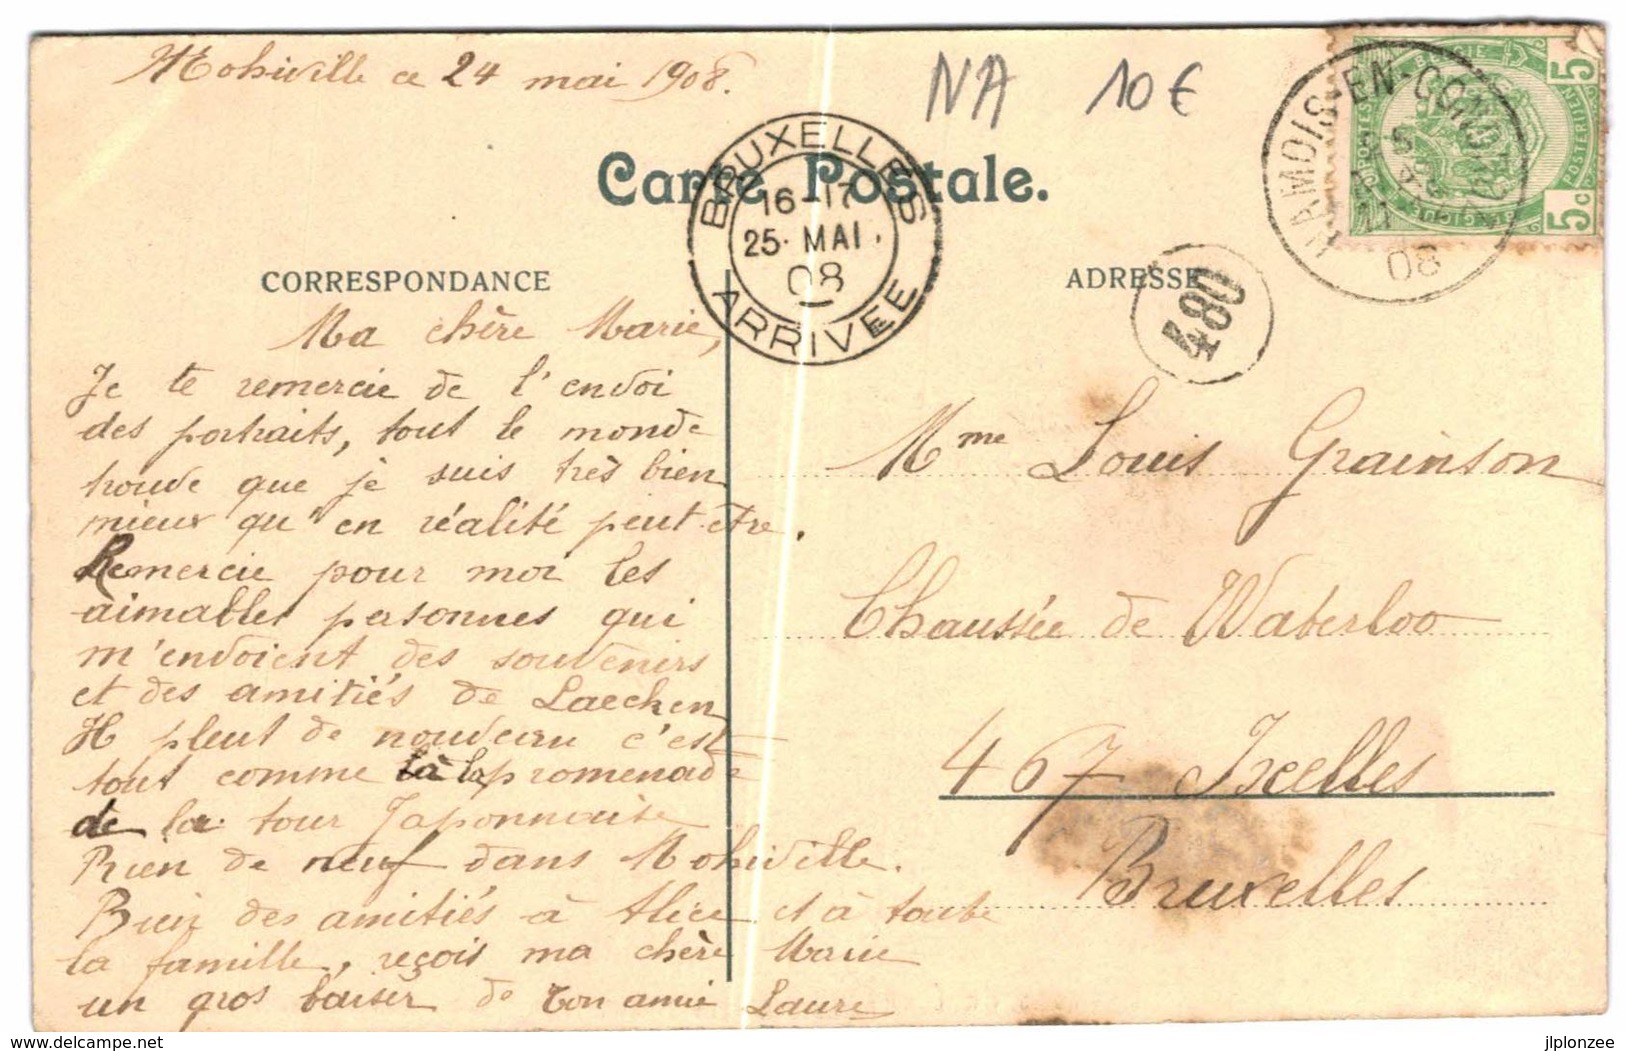 Mohiville ce 24 mai 1908.
NA 10€
Carte Postale.
BRUXELLES
16-17
25· MAI.
08
ARRIVEE
HAMOIS-EN-CONDROZ
08
BELGIE
5c
5
BELGIQUE
480
CORRESPONDANCE
ADRESSE
Ma chère Marie,
Je te remercie de l'envoi
des portraits, tout le monde
trouve que je suis très bien
mieux qu'en réalité peut-être.
Remercie pour moi les
aimables personnes qui
m'envoient des souvenirs
et des amitiés de Laecken
Il pleut de nouveau c'est
tout comme à la promenade
de la tour Japonnaise
Rien de neuf dans Mohiville.
Bien des amitiés à Alice et à toute
la famille, reçois ma chère Marie
un gros baiser de ton amie Laure
Mme Louis Grainson
Chaussée de Waterloo
467 Ixelles
Bruxelles
www.delcampe.net
jlplonzee